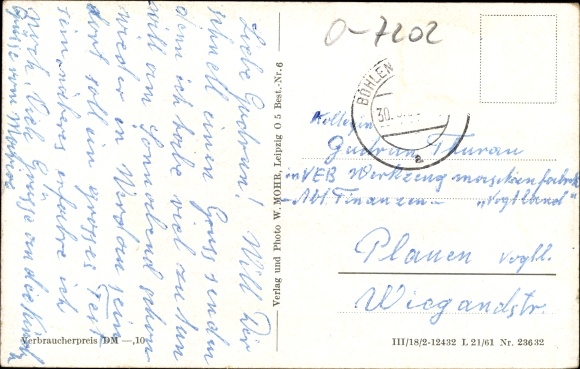 Liebe Gudrun! Will Dir
schnell einen Gruss senden
denn ich habe viel zu tun
will am Sonnabend schon
wieder in Werdau sein
dort soll ein grosses Fest
sein näheres erfahre ich
noch. Viel Grüsse an die
Grüsse von
Verbraucherpreis DM —,10
Verlag und Photo W. MOHR, Leipzig O 5 Best.-Nr. 6
O-7202
BÖHLEN
30.
a
Kollegin
Gudrun Thurau
VEB Werkzeugmaschinenfabrik
Abt. Finanzen „Vogtland"
Plauen Vogtl.
Wiegandstr.
III/18/2-12432 I. 21/61 Nr. 23632